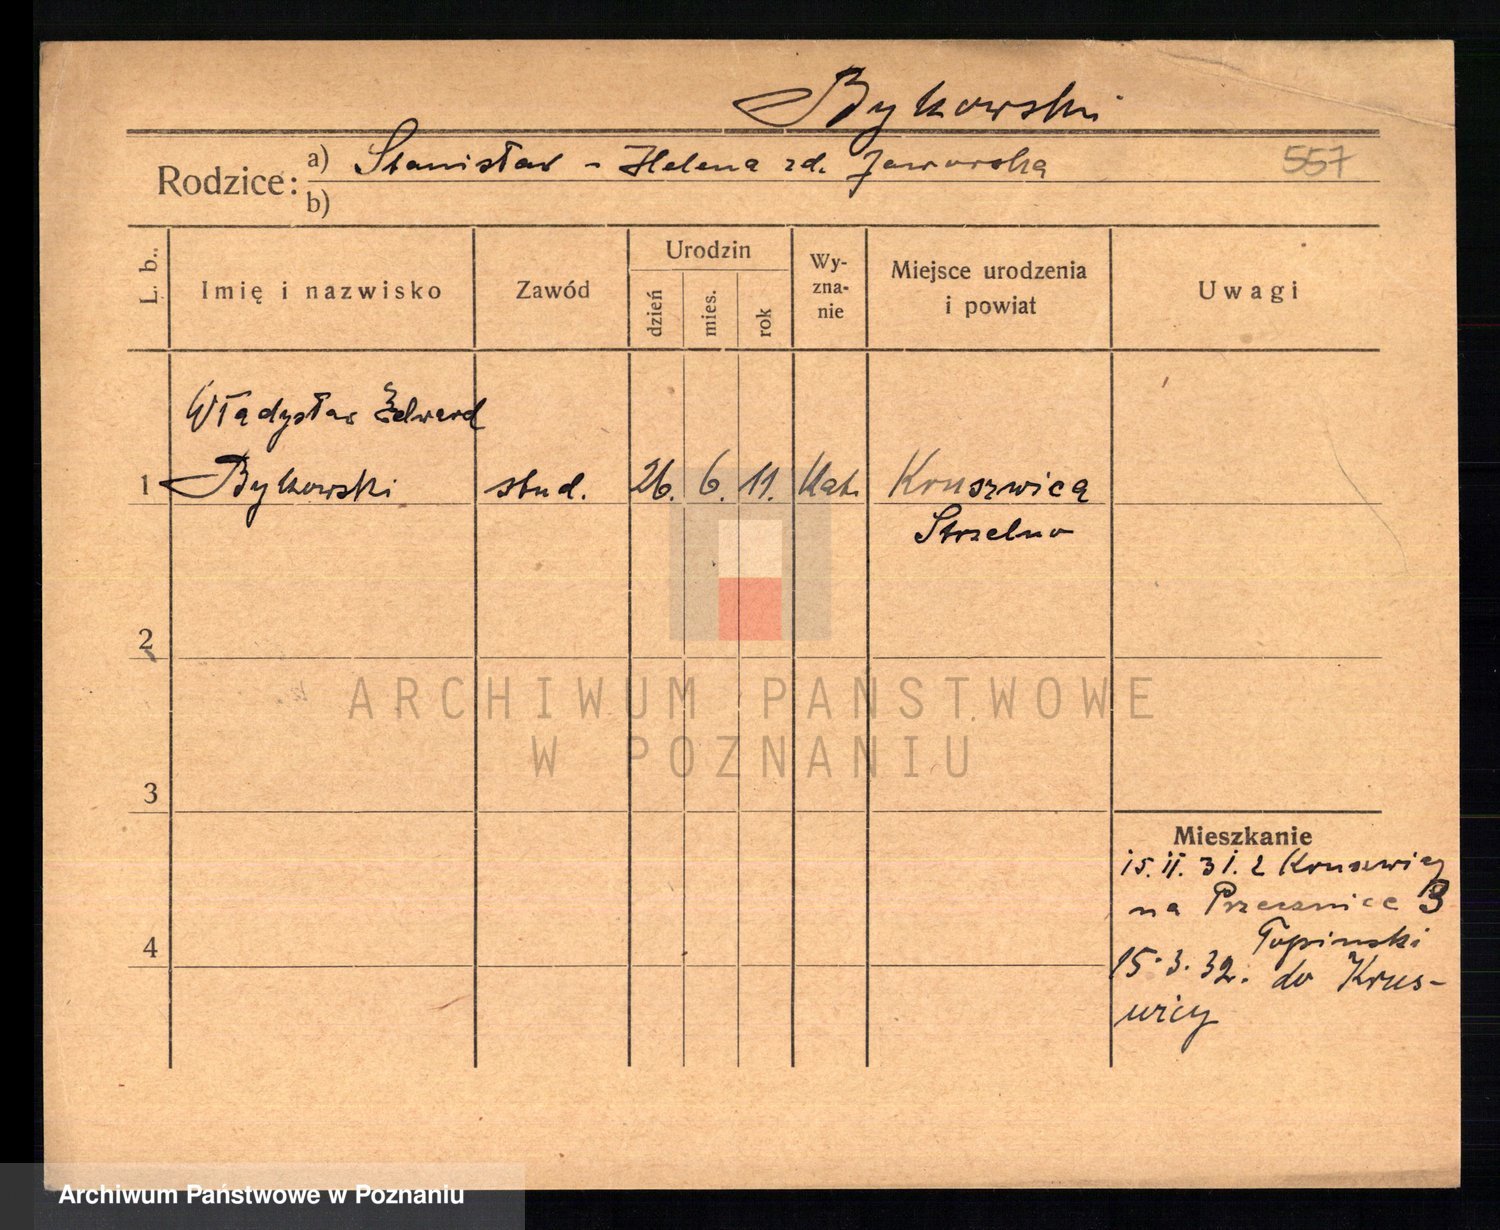 Bykowski
Rodzice: a) Stanisław - Helena zd. Jaworska 557
b)
L. b.. Imię i nazwisko Zawód Urodzin dzień mies. rok Wy-zna-nie Miejsce urodzenia i powiat Uwagi
Władysław Edward
1 Bykowski stud. 26. 6. 11. Kat. Kruszwica
Strzelno
2
ARCHIWUM PAŃSTWOWE
W POZNANIU
3
Mieszkanie
15. II. 31. z Kruszwicy
na Przecznice 3
Topinski
4
15.3.32. do Krus-
wicy
Archiwum Państwowe w Poznaniu